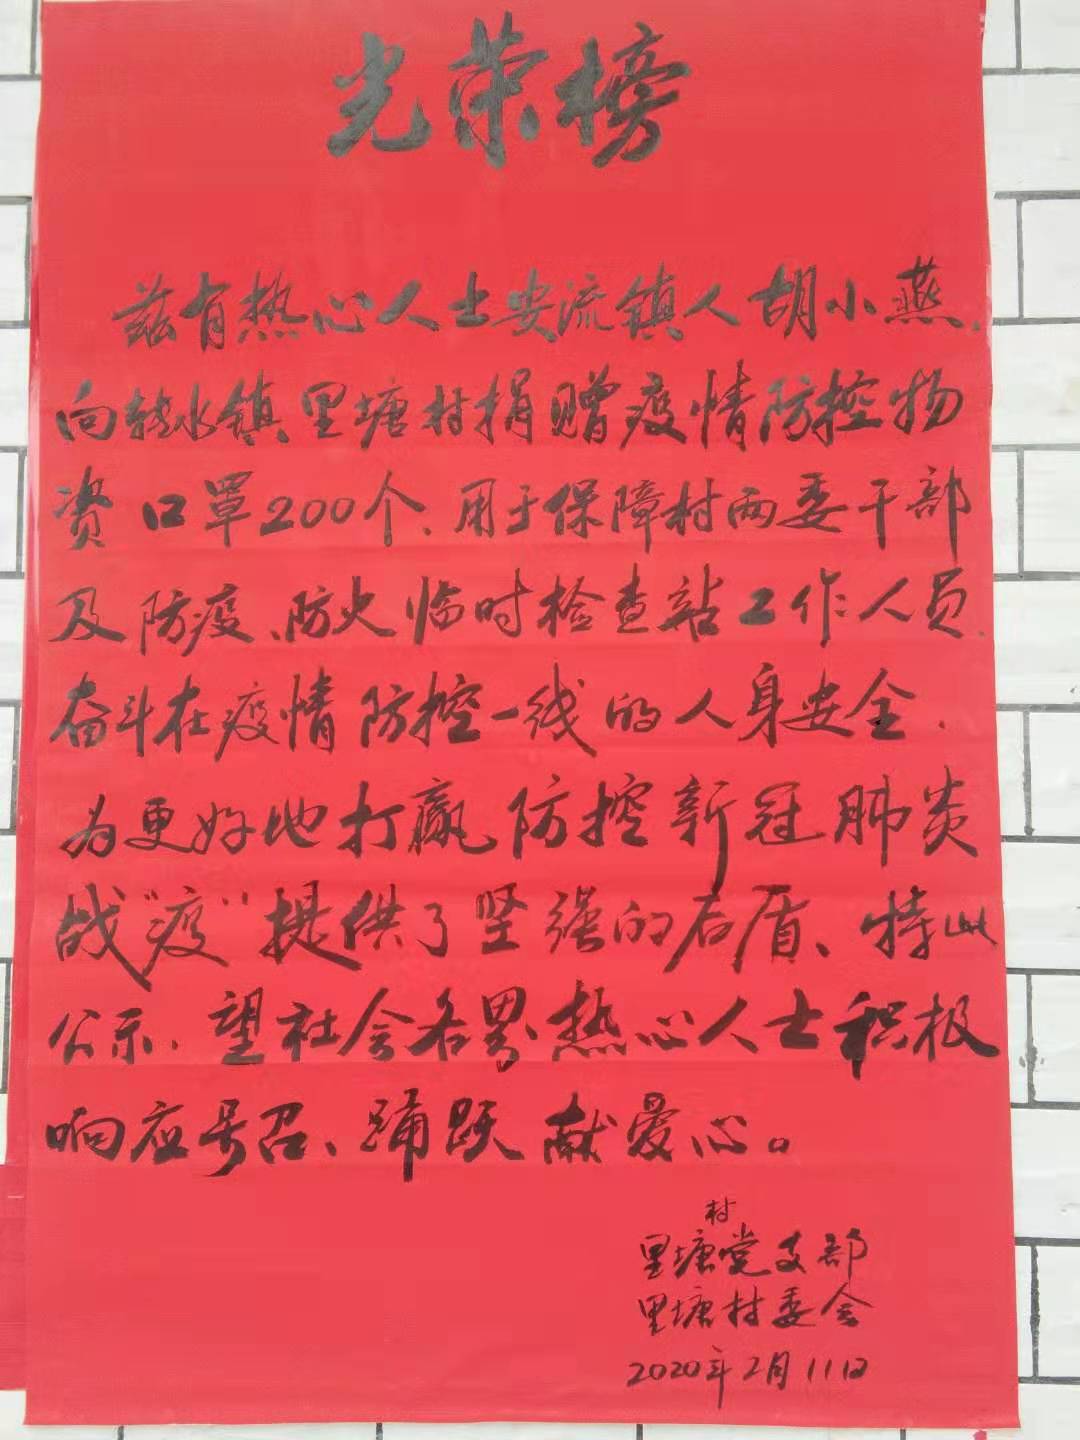 光荣榜
兹有热心人士安流镇人胡小燕.
向转水镇里塘村捐赠疫情防控物
资口罩200个、用于保障村两委干部
及防疫、防火临时检查站工作人员.
奋斗在疫情防控一线的人身安全.
为更好地打赢防控新冠肺炎
战"疫"提供了坚强的后盾、特此
公示.望社会各界热心人士积极
响应号召、踊跃献爱心。
里塘村党支部
里塘村委会
2020年2月11日